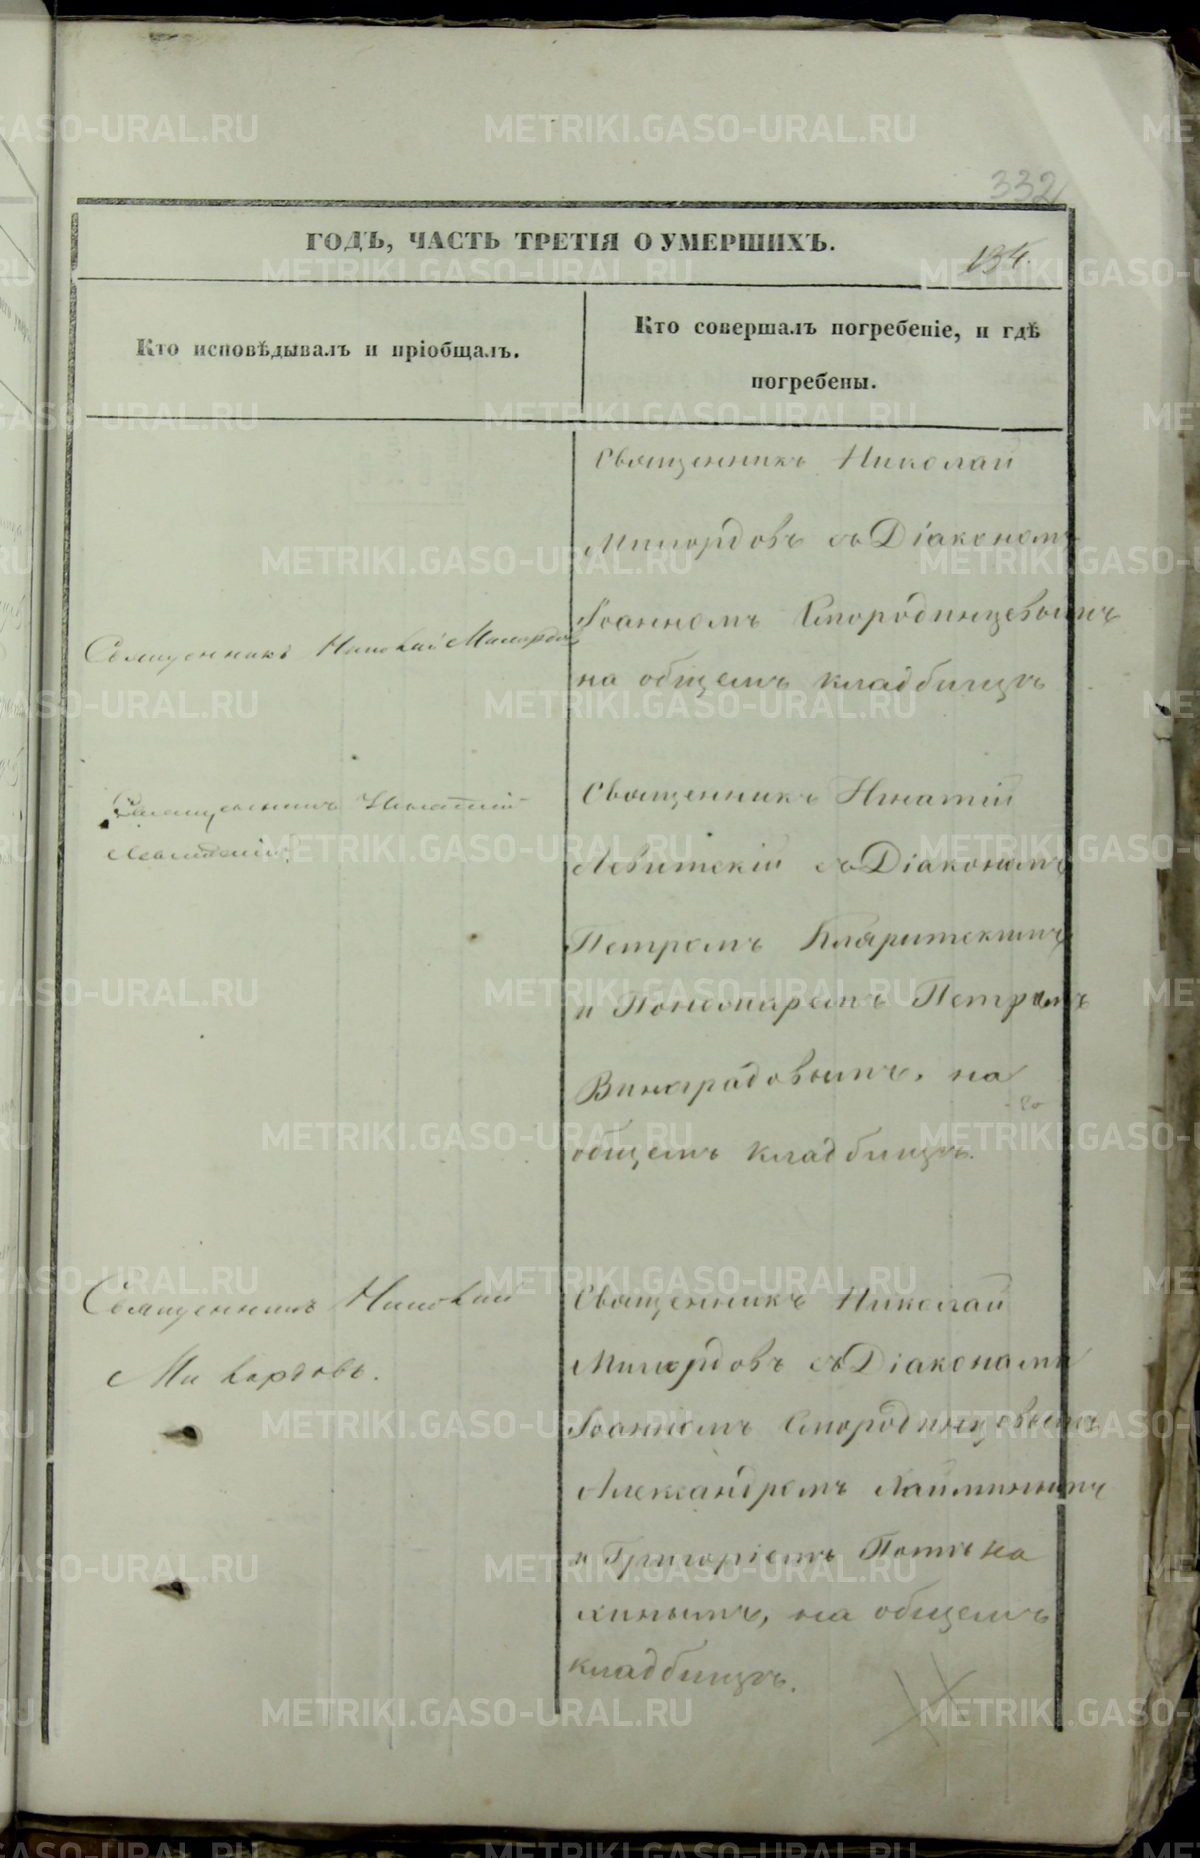 332
ГОДЪ, ЧАСТЬ ТРЕТІЯ О УМЕРШИХЪ.
134.
Кто исповѣдывалъ и пріобщалъ.
Кто совершалъ погребеніе, и гдѣ
погребены.
Священникъ Николай
Милордовъ съ Діакономъ
Іоанномъ Смородинцевымъ
на общемъ кладбищѣ
Священникъ Николай Милордовъ
Священникъ Игнатій
Левитскій.
Священникъ Игнатій
Левитскій съ Діакономъ
Петромъ
и Пономаремъ Петромъ
Виноградовымъ, на
общемъ кладбищѣ.
Священникъ Николай
Милордовъ.
Священникъ Николай
Милордовъ съ Діаконами
Іоанномъ Смородинцевымъ
Александромъ
и Григоріемъ
на общемъ
кладбищѣ.
METRIKI.GASO-URAL.RU